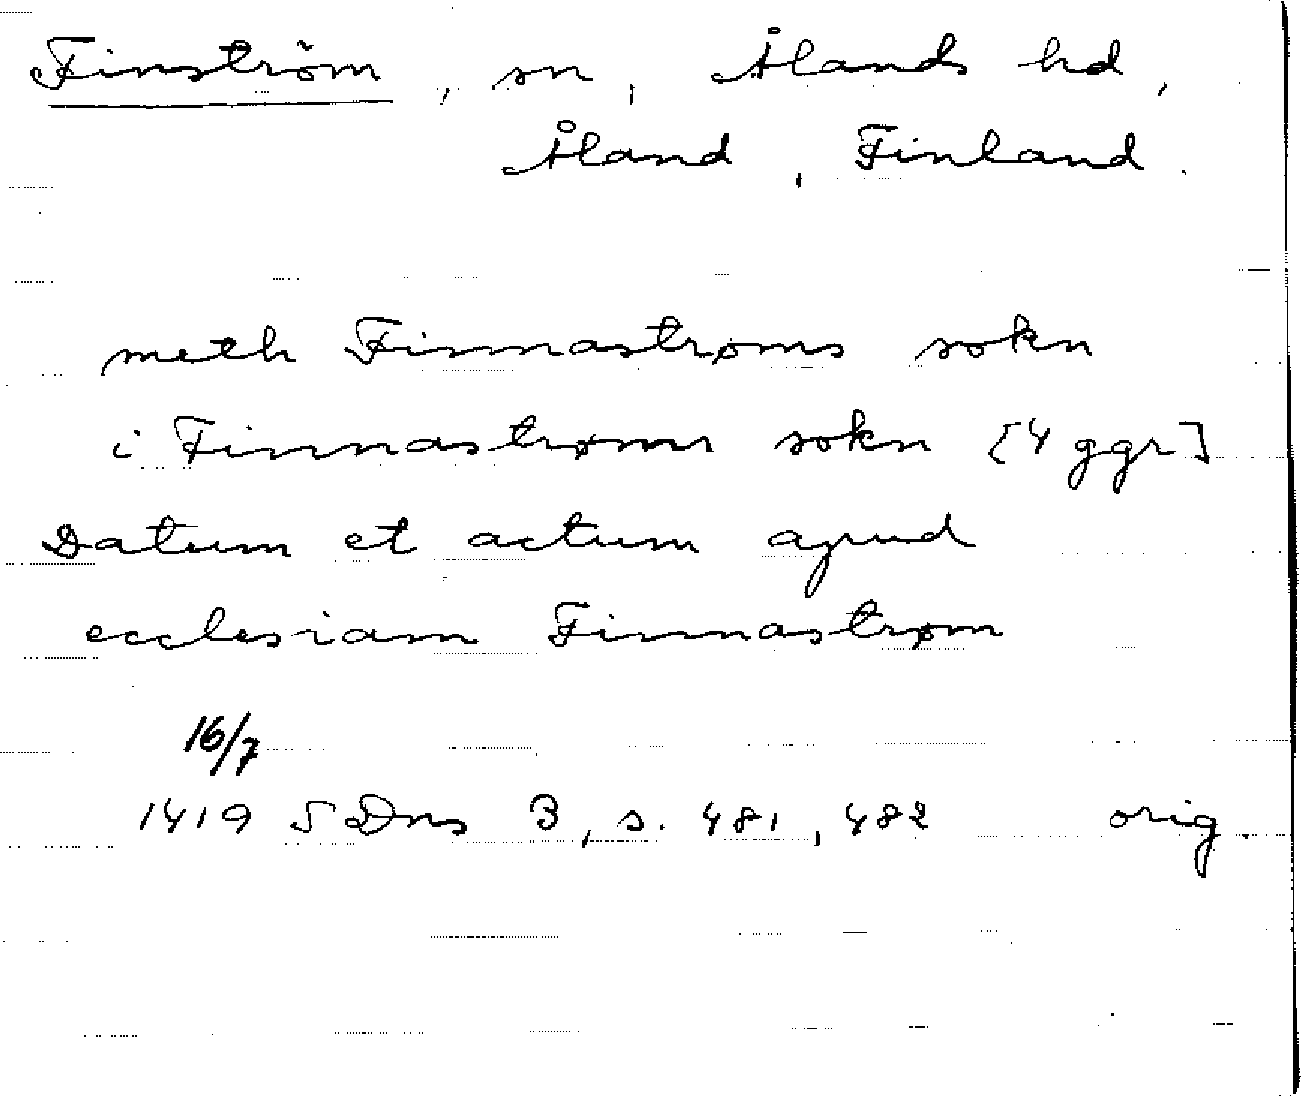 Finström, sn, Ålands hd,
Åland, Finland.
meth Finnastrøms sokn
i Finnastrøms sokn [4 ggr]
Datum et actum apud
ecclesiam Finnastrøm
16/7
1419 SDns 3, s. 481, 482 orig.